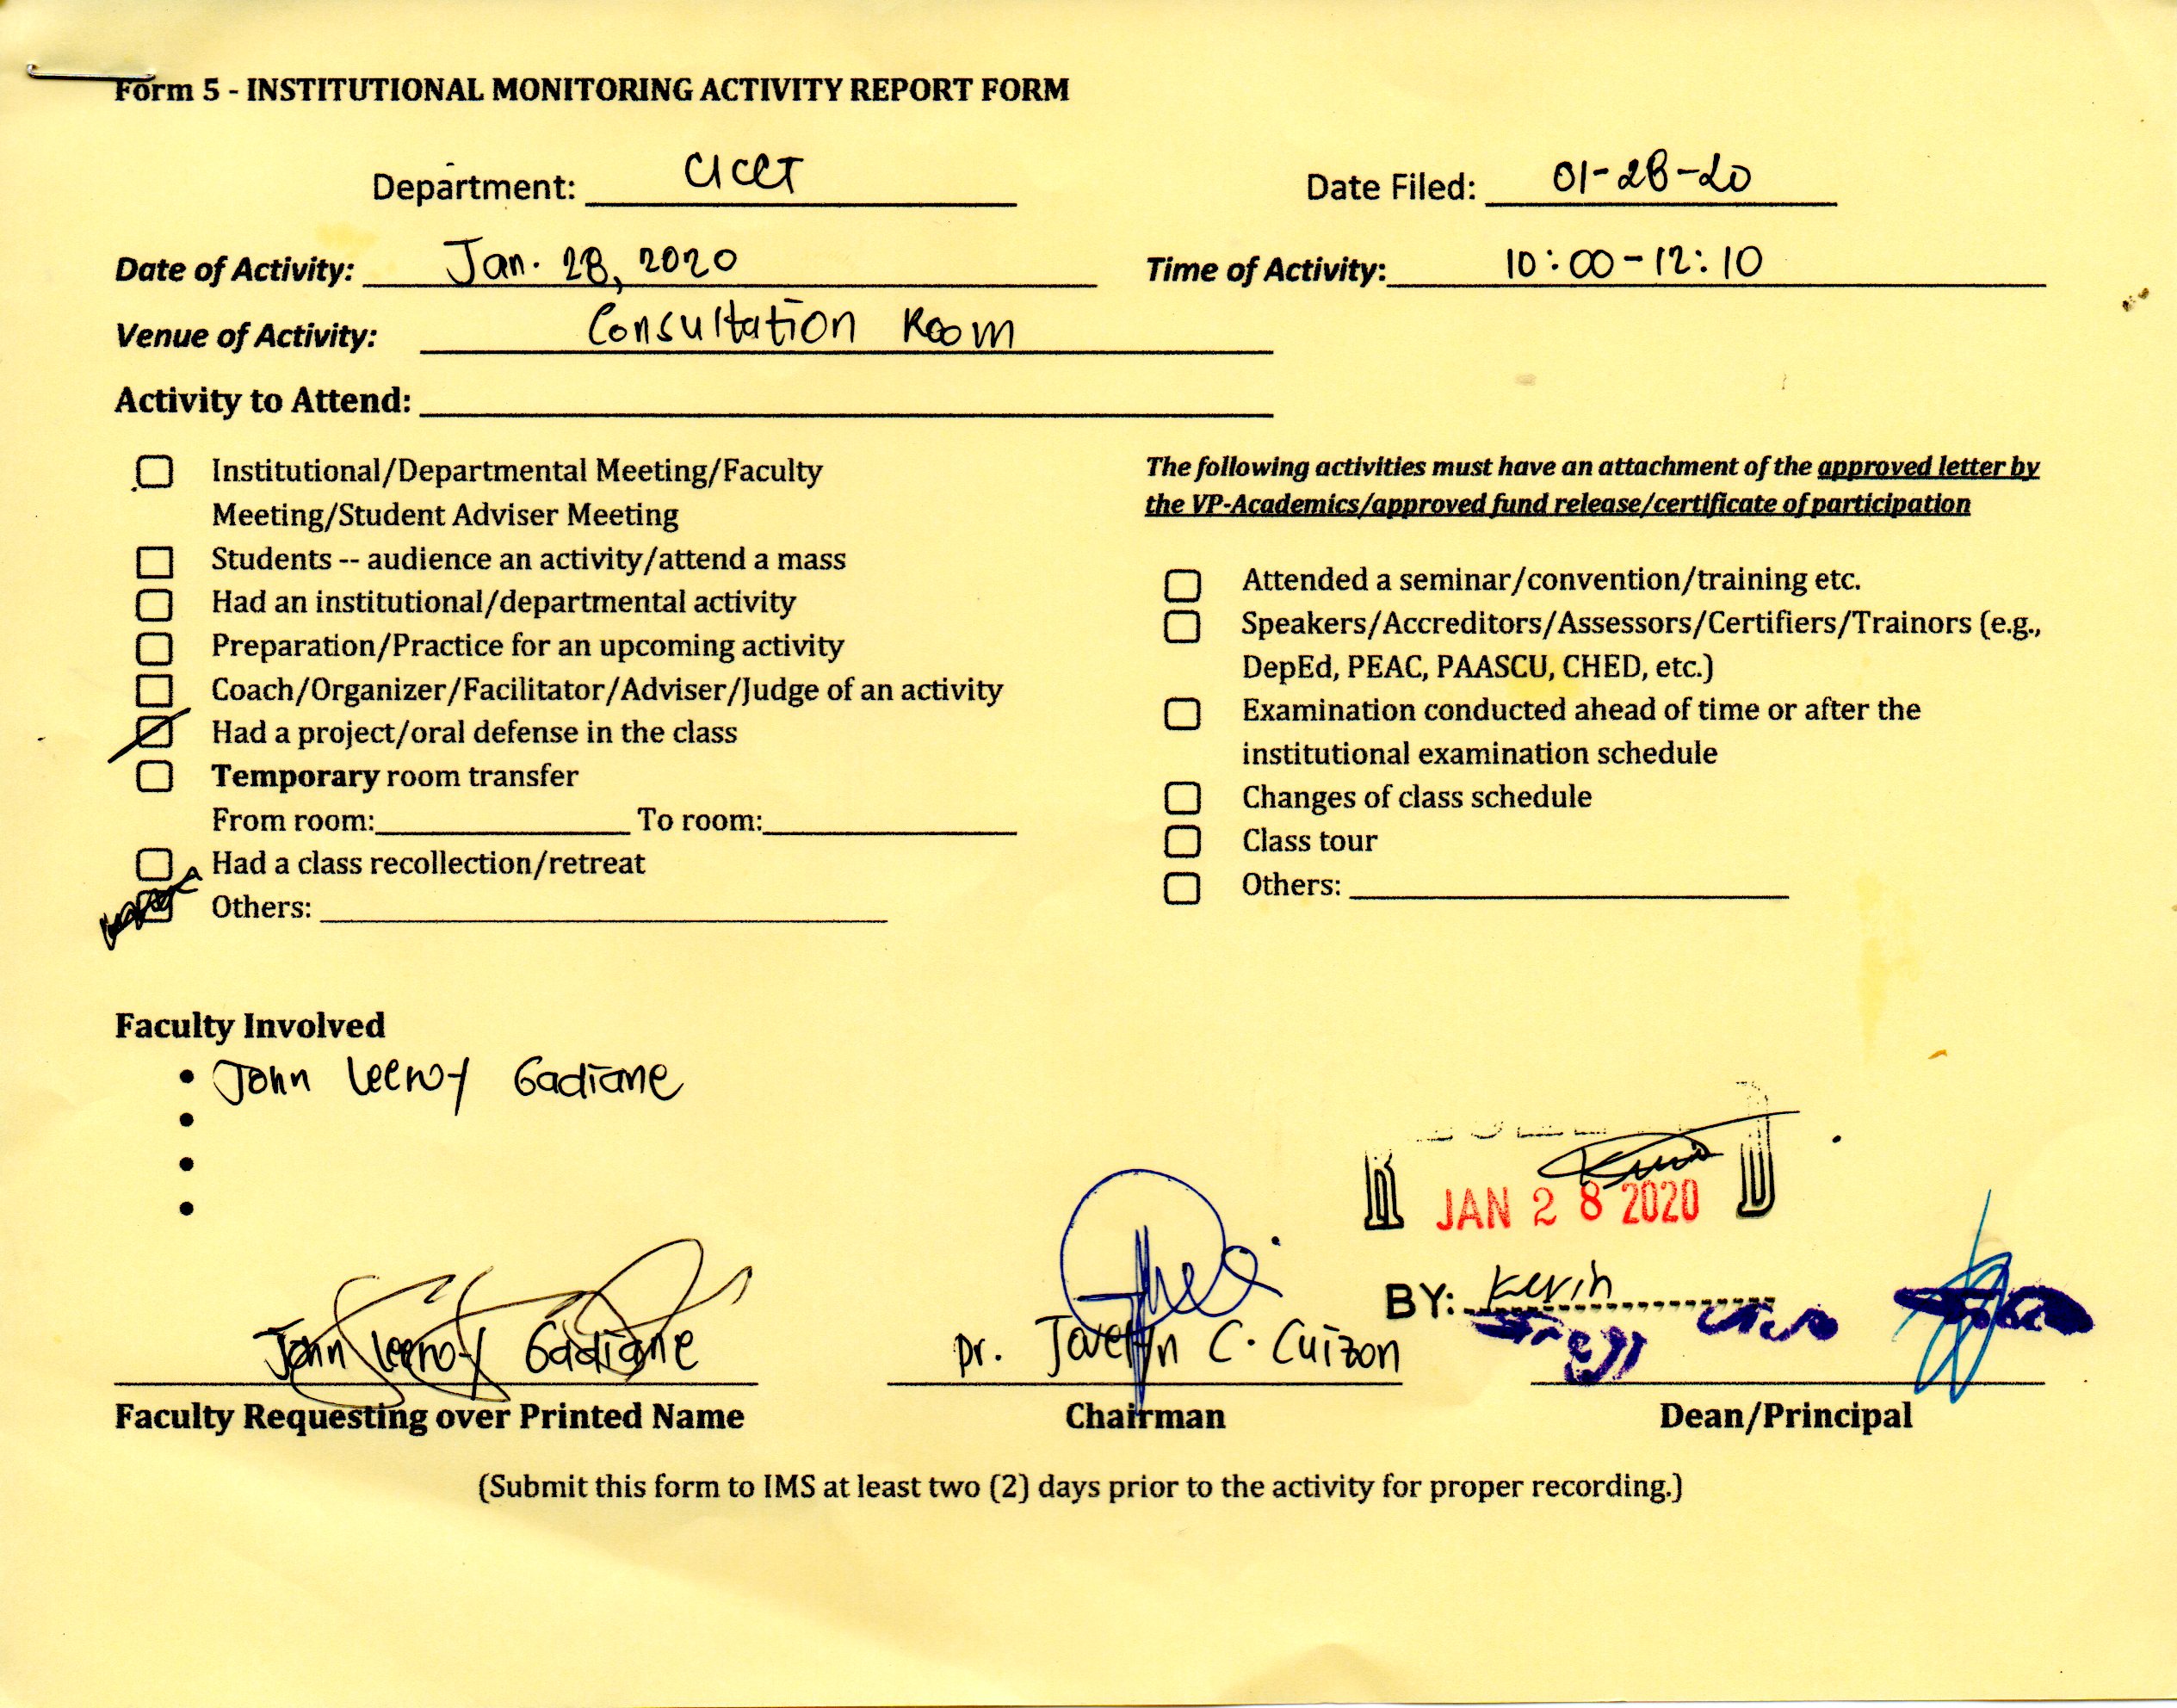 Form 5 - INSTITUTIONAL MONITORING ACTIVITY REPORT FORM
Department: CICCT
Date Filed: 01-28-20
Date of Activity: Jan. 28, 2020
Time of Activity: 10:00-12:10
Venue of Activity: Consultation Room
Activity to Attend:
Institutional/Departmental Meeting/Faculty
Meeting/Student Adviser Meeting
Students -- audience an activity/attend a mass
Had an institutional/departmental activity
Preparation/Practice for an upcoming activity
Coach/Organizer/Facilitator/Adviser/Judge of an activity
Had a project/oral defense in the class
Temporary room transfer
From room: To room:
Had a class recollection/retreat
Others:
The following activities must have an attachment of the approved letter by
the VP-Academics/approved fund release/certificate of participation
Attended a seminar/convention/training etc.
Speakers/Accreditors/Assessors/Certifiers/Trainors (e.g.,
DepEd, PEAC, PAASCU, CHED, etc.)
Examination conducted ahead of time or after the
institutional examination schedule
Changes of class schedule
Class tour
Others:
Faculty Involved
John Leeroy Gadiane
JAN 28 2020
BY: Kevin
John Leeroy Gadiane
Dr. Jovelyn C. Cuizon
Faculty Requesting over Printed Name
Chairman
Dean/Principal
(Submit this form to IMS at least two (2) days prior to the activity for proper recording.)